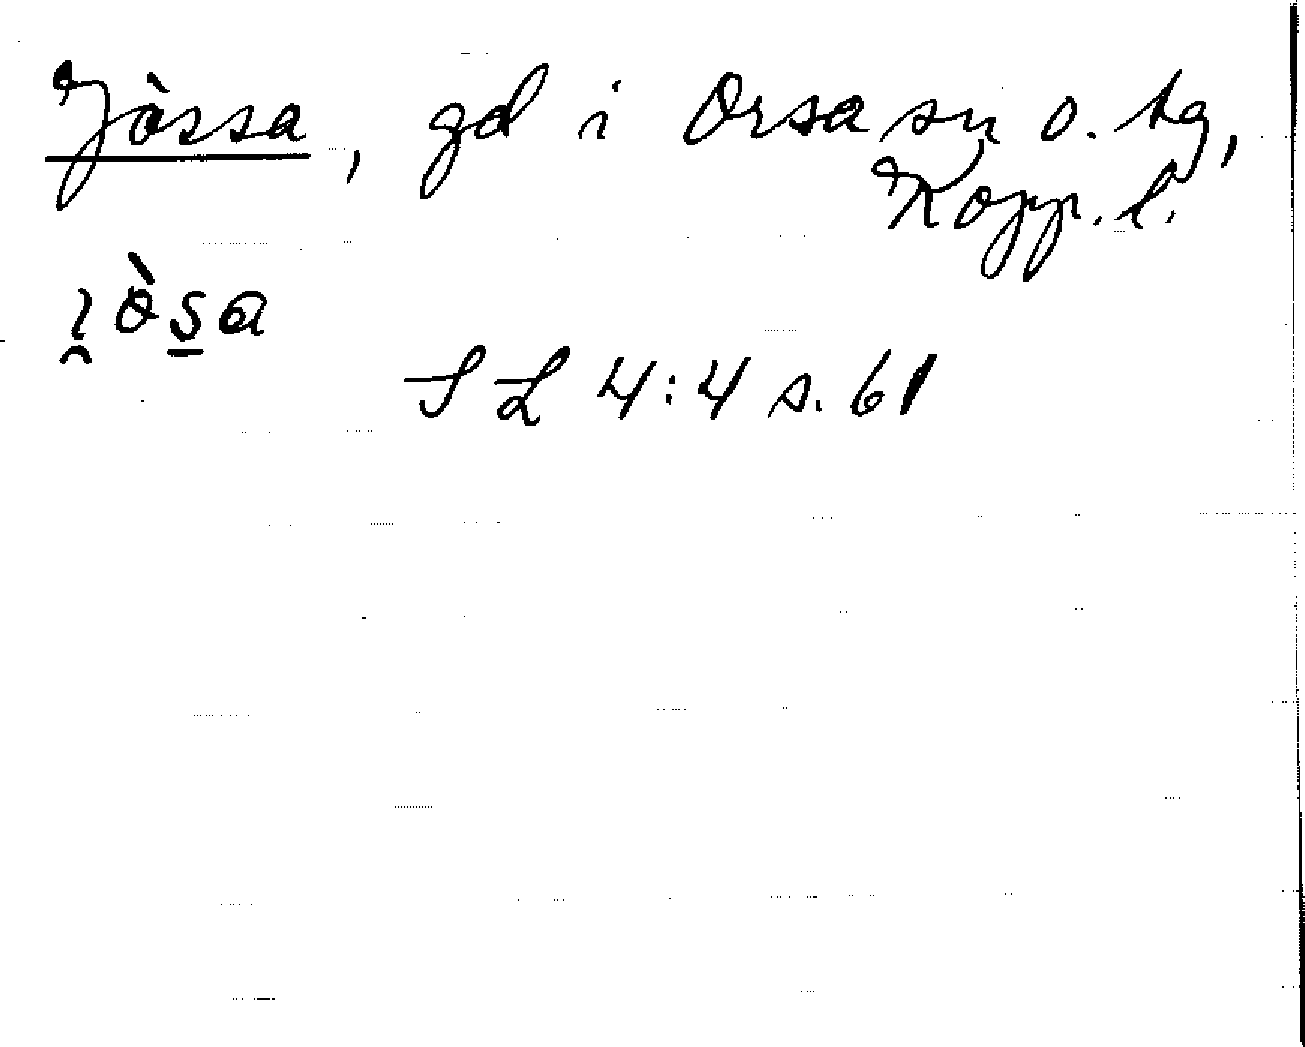 Jòssa, gd i Orsa sn o. tg,
Kopp. l.
ı̯òs̠a
SL 4:4 s. 61